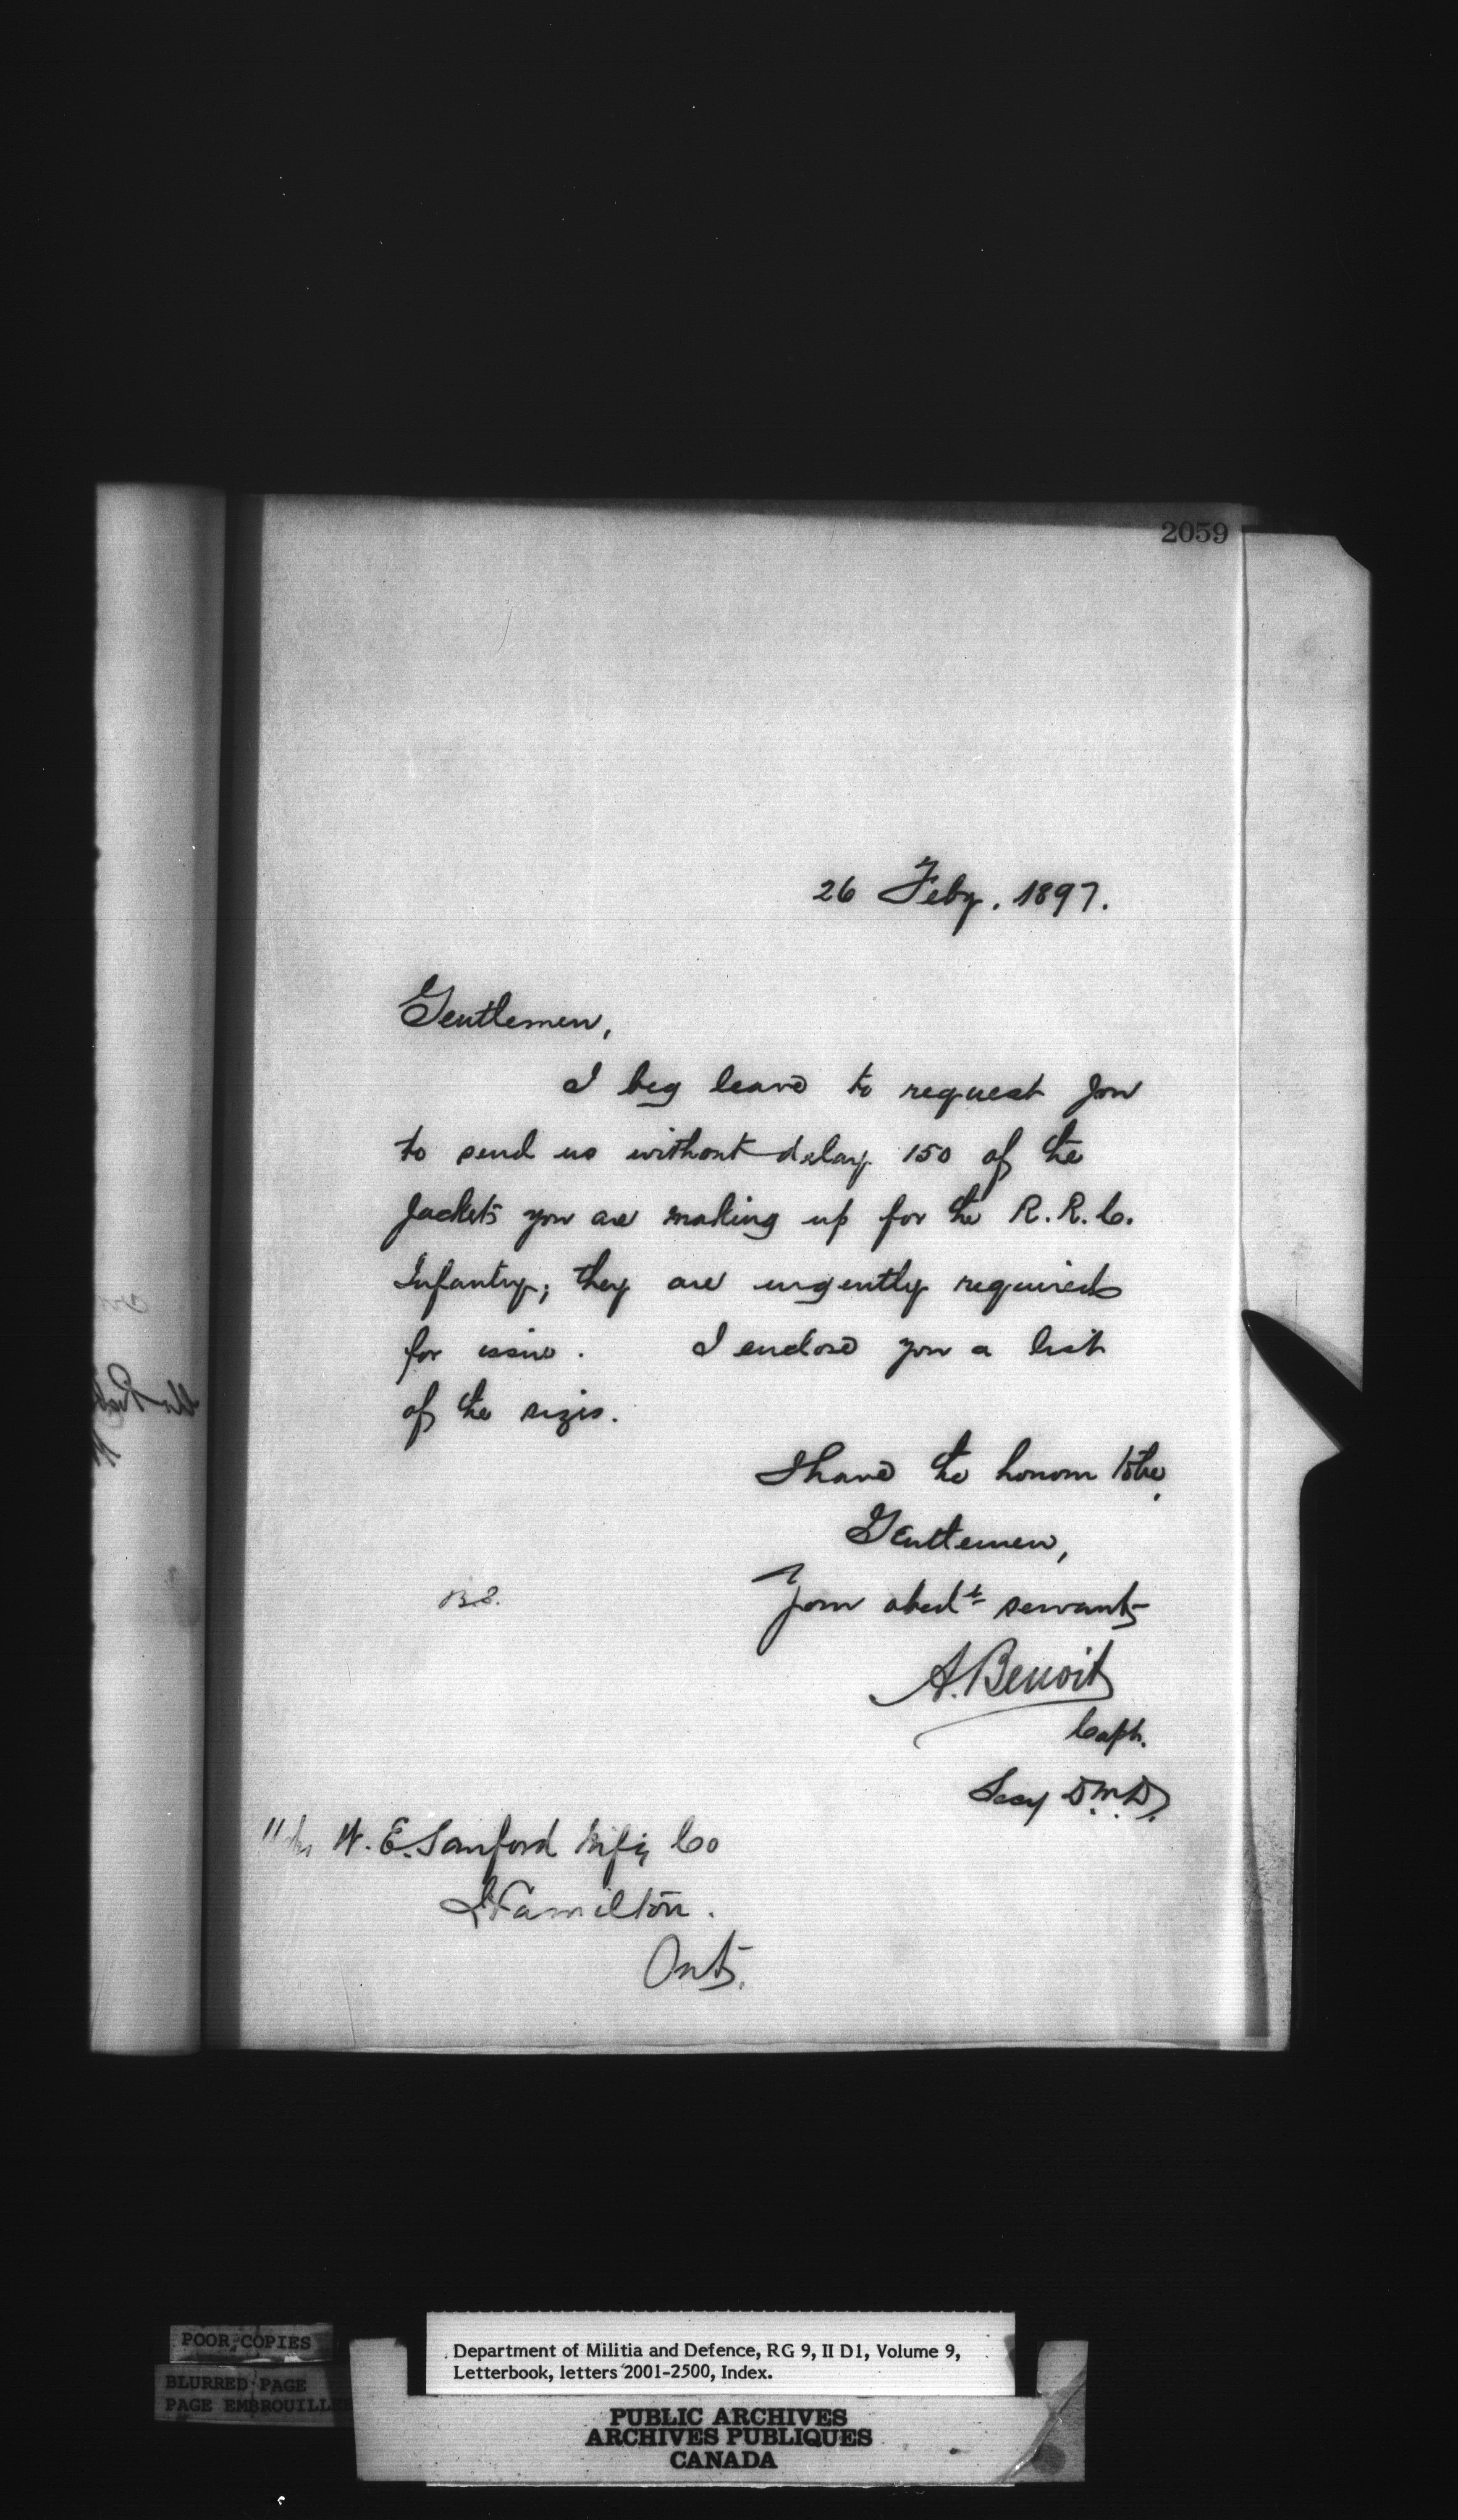 2059
26 Feby. 1897.
Gentlemen,
I beg leave to request you
to send us without delay 150 of the
Jackets you are making up for the R.R.C.
Infantry; they are urgently required
for issue. I enclose you a list
of the sizes.
I have the honour to be,
Gentlemen,
Your obedt servant
A. Benoit
Capt.
Secy D.M.D.
W. E. Sanford Mfg Co
Hamilton.
Ont.
POOR COPIES
BLURRED PAGE
PAGE EMBROUILLE
Department of Militia and Defence, RG 9, II D1, Volume 9,
Letterbook, letters 2001-2500, Index.
PUBLIC ARCHIVES
ARCHIVES PUBLIQUES
CANADA